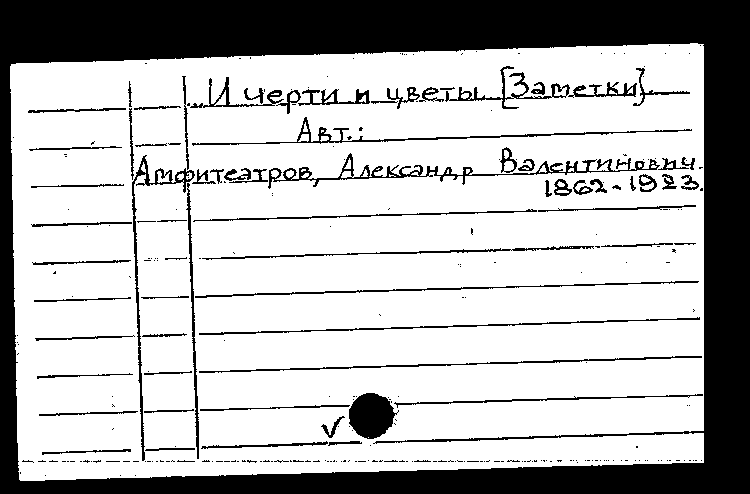 И черти и цветы [Заметки].
Авт.:
Амфитеатров, Александр Валентинович.
1862-1923.